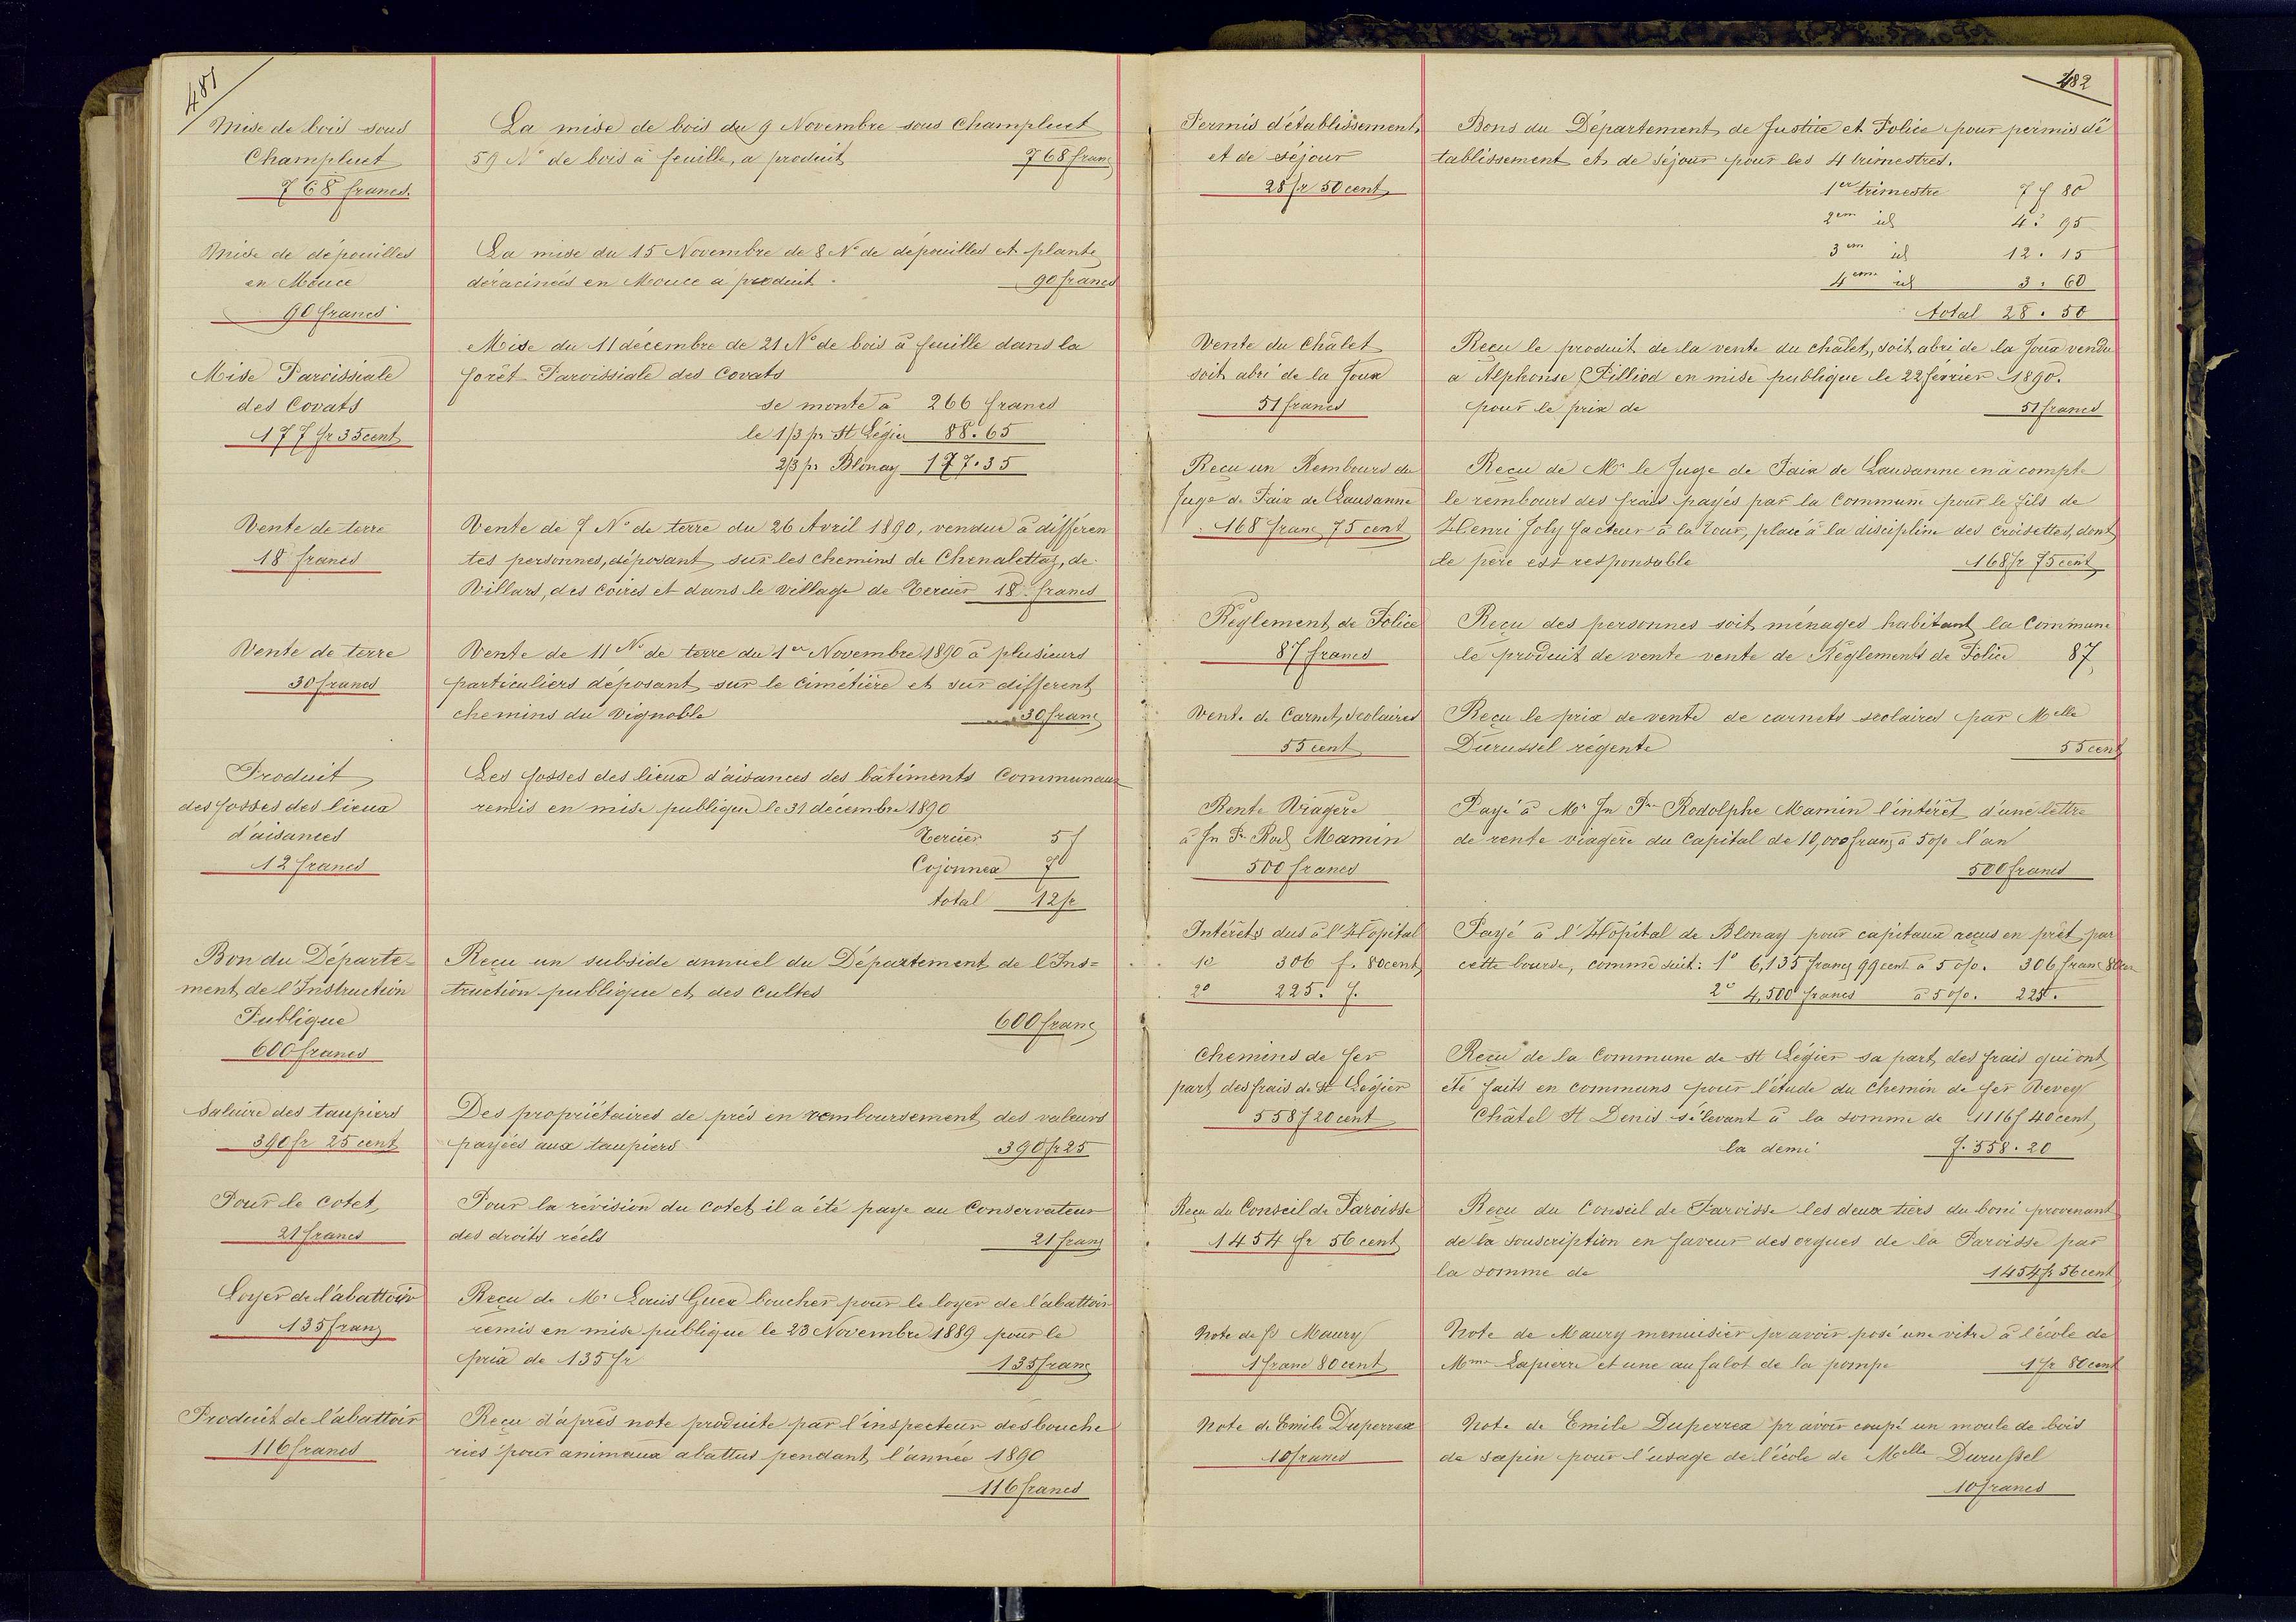 481
Mise de bois sous
Champluet
768 francs.
La mise de bois du 9 Novembre sous Champluet
59 N° de bois à feuille, a produit 768 franc
Mise de dépouilles
en Mouce
90 francs
La mise du 15 Novembre de 8 N° de dépouilles et plante
déracinées en Mouce a produit. 90 francs
Mise Paroissiale
des Covats
177 fr 35 cent
Mise du 11 décembre de 21 N° de bois à feuille dans la
forêt Paroissiale des Covats
se monte à 266 francs
le 1/3 pr St Légier 88.65
2/3 pr Blonay 177.35
Vente de terre
18 francs
Vente de 7 N° de terre du 26 Avril 1890, vendue à différen
tes personnes, déposant sur les chemins de Chenalettaz, de
Villars, des Coires et dans le village de Tercier 18 francs
Vente de terre
30 francs
Vente de 11 N° de terre du 1er Novembre 1890 à plusieurs
particuliers déposant sur le Cimetière et sur different
chemins du Vignoble 30 franc
Produit
des fosses des lieux
d'aisances
12 francs
Les fosses des lieux d'aisances des bâtiments Communaux
remis en mise publique le 31 décembre 1890
Tercier 5 f
Cojonnex 7"
total 12 fr
Bon du Départe=
ment de l'Instruction
Publique
600 francs
Reçu un subside annuel du Département de l'Ins=
truction publique et des Cultes
600 franc
Salaire des taupiers
390 fr 25 cent
Des propriétaires de prés en remboursement des valeurs
payées aux taupiers 390 fr 25
Pour le cotet
21 francs
Pour la révision du cotet il a été paye au Conservateur
des droits réels 21 franc
Loyer de l'abattoir
135 franc
Reçu de Mr Louis Guex boucher pour le loyer de l'abattoir
remis en mise publique le 23 Novembre 1889 pour le
prix de 135 fr 135 franc
Produit de l'abattoir
116 francs
Reçu d'après note produite par l'inspecteur des bouche
ries pour animaux abattus pendant l'année 1890
116 francs
482
Permis d'établissement
et de séjour
28 fr 50 cent
Bons du Département de Justice et Police pour permis dé
tablissement et de séjour pour les 4 trimestres.
1er trimestre 7 f 80
2em id 4: 95
3em id 12. 15
4em id 3. 60
total 28. 50
Vente du Châlet
soit abri de la Joux
51 francs
Reçu le produit de la vente du châlet, soit abri de la Joux vendu
a Alphonse Pilliod en mise publique le 22 février 1890.
pour le prix de 51 francs
Reçu un Rembours du
Juge de Paix de Lausanne
168 franc 75 cent
Reçu de Mr le Juge de Paix de Lausanne en à compte
le rembours des frais payés par la Commune pour le fils de
Henri Joly facteur à la Tour, placé à la discipline des Croisettes, dont
le père est responsable 168 fr 75 cent
Règlement de Police
87 francs
Reçu des personnes soit ménages habitant la Commune
le produit de vente vente de Règlements de Police 87
Vente de Carnet scolaires
55 cent
Reçu le prix de vente de carnets scolaires par Melle
Durussel régente 55 cent
Rente Viagère
à Jn Fr Rod Mamin
500 francs
Payé à Mr Jn Fr Rodolphe Mamin l'intérêt d'une lettre
de rente viagère du Capital de 10,000 franc à 5 o/o l'an
500 francs
Intérêts dus à l'Hôpital
1° 306 f. 80 cent
2° 225. f.
Payé à l'Hôpital de Blonay pour capitaux reçus en prêt par
cette bourse, comme suit: 1° 6,135 franc 99 cent à 5 o/o. 306 franc 80 cen
2° 4,500 francs à 5 o/o. 225.
Chemins de fer
part des frais de St Légier
558 f 20 cent
Reçu de la Commune de St Légier sa part des frais qui ont
été faits en communs pour l'étude du Chemin de fer Vevey
Châtel St Denis s'élevant à la somme de 1116 f 40 cent
la demi f. 558. 20
Reçu du Conseil de Paroisse
1454 fr 56 cent
Reçu du Conseil de Paroisse les deux tiers du boni provenant
de la souscription en faveur des orgues de la Paroisse par
la somme de 1454 fr 56 cent
Note de Maury
1 franc 80 cent
Note de Maury menuisier pr avoir posé une vitre à l'école de
Mme Lapierre et une au falot de la pompe 1 fr 80 cent
Note de Emile Duperrex
10 francs
Note de Emile Duperrex pr avoir coupé un moule de bois
de sapin pour l'usage de l'école de Melle Durussel
10 francs